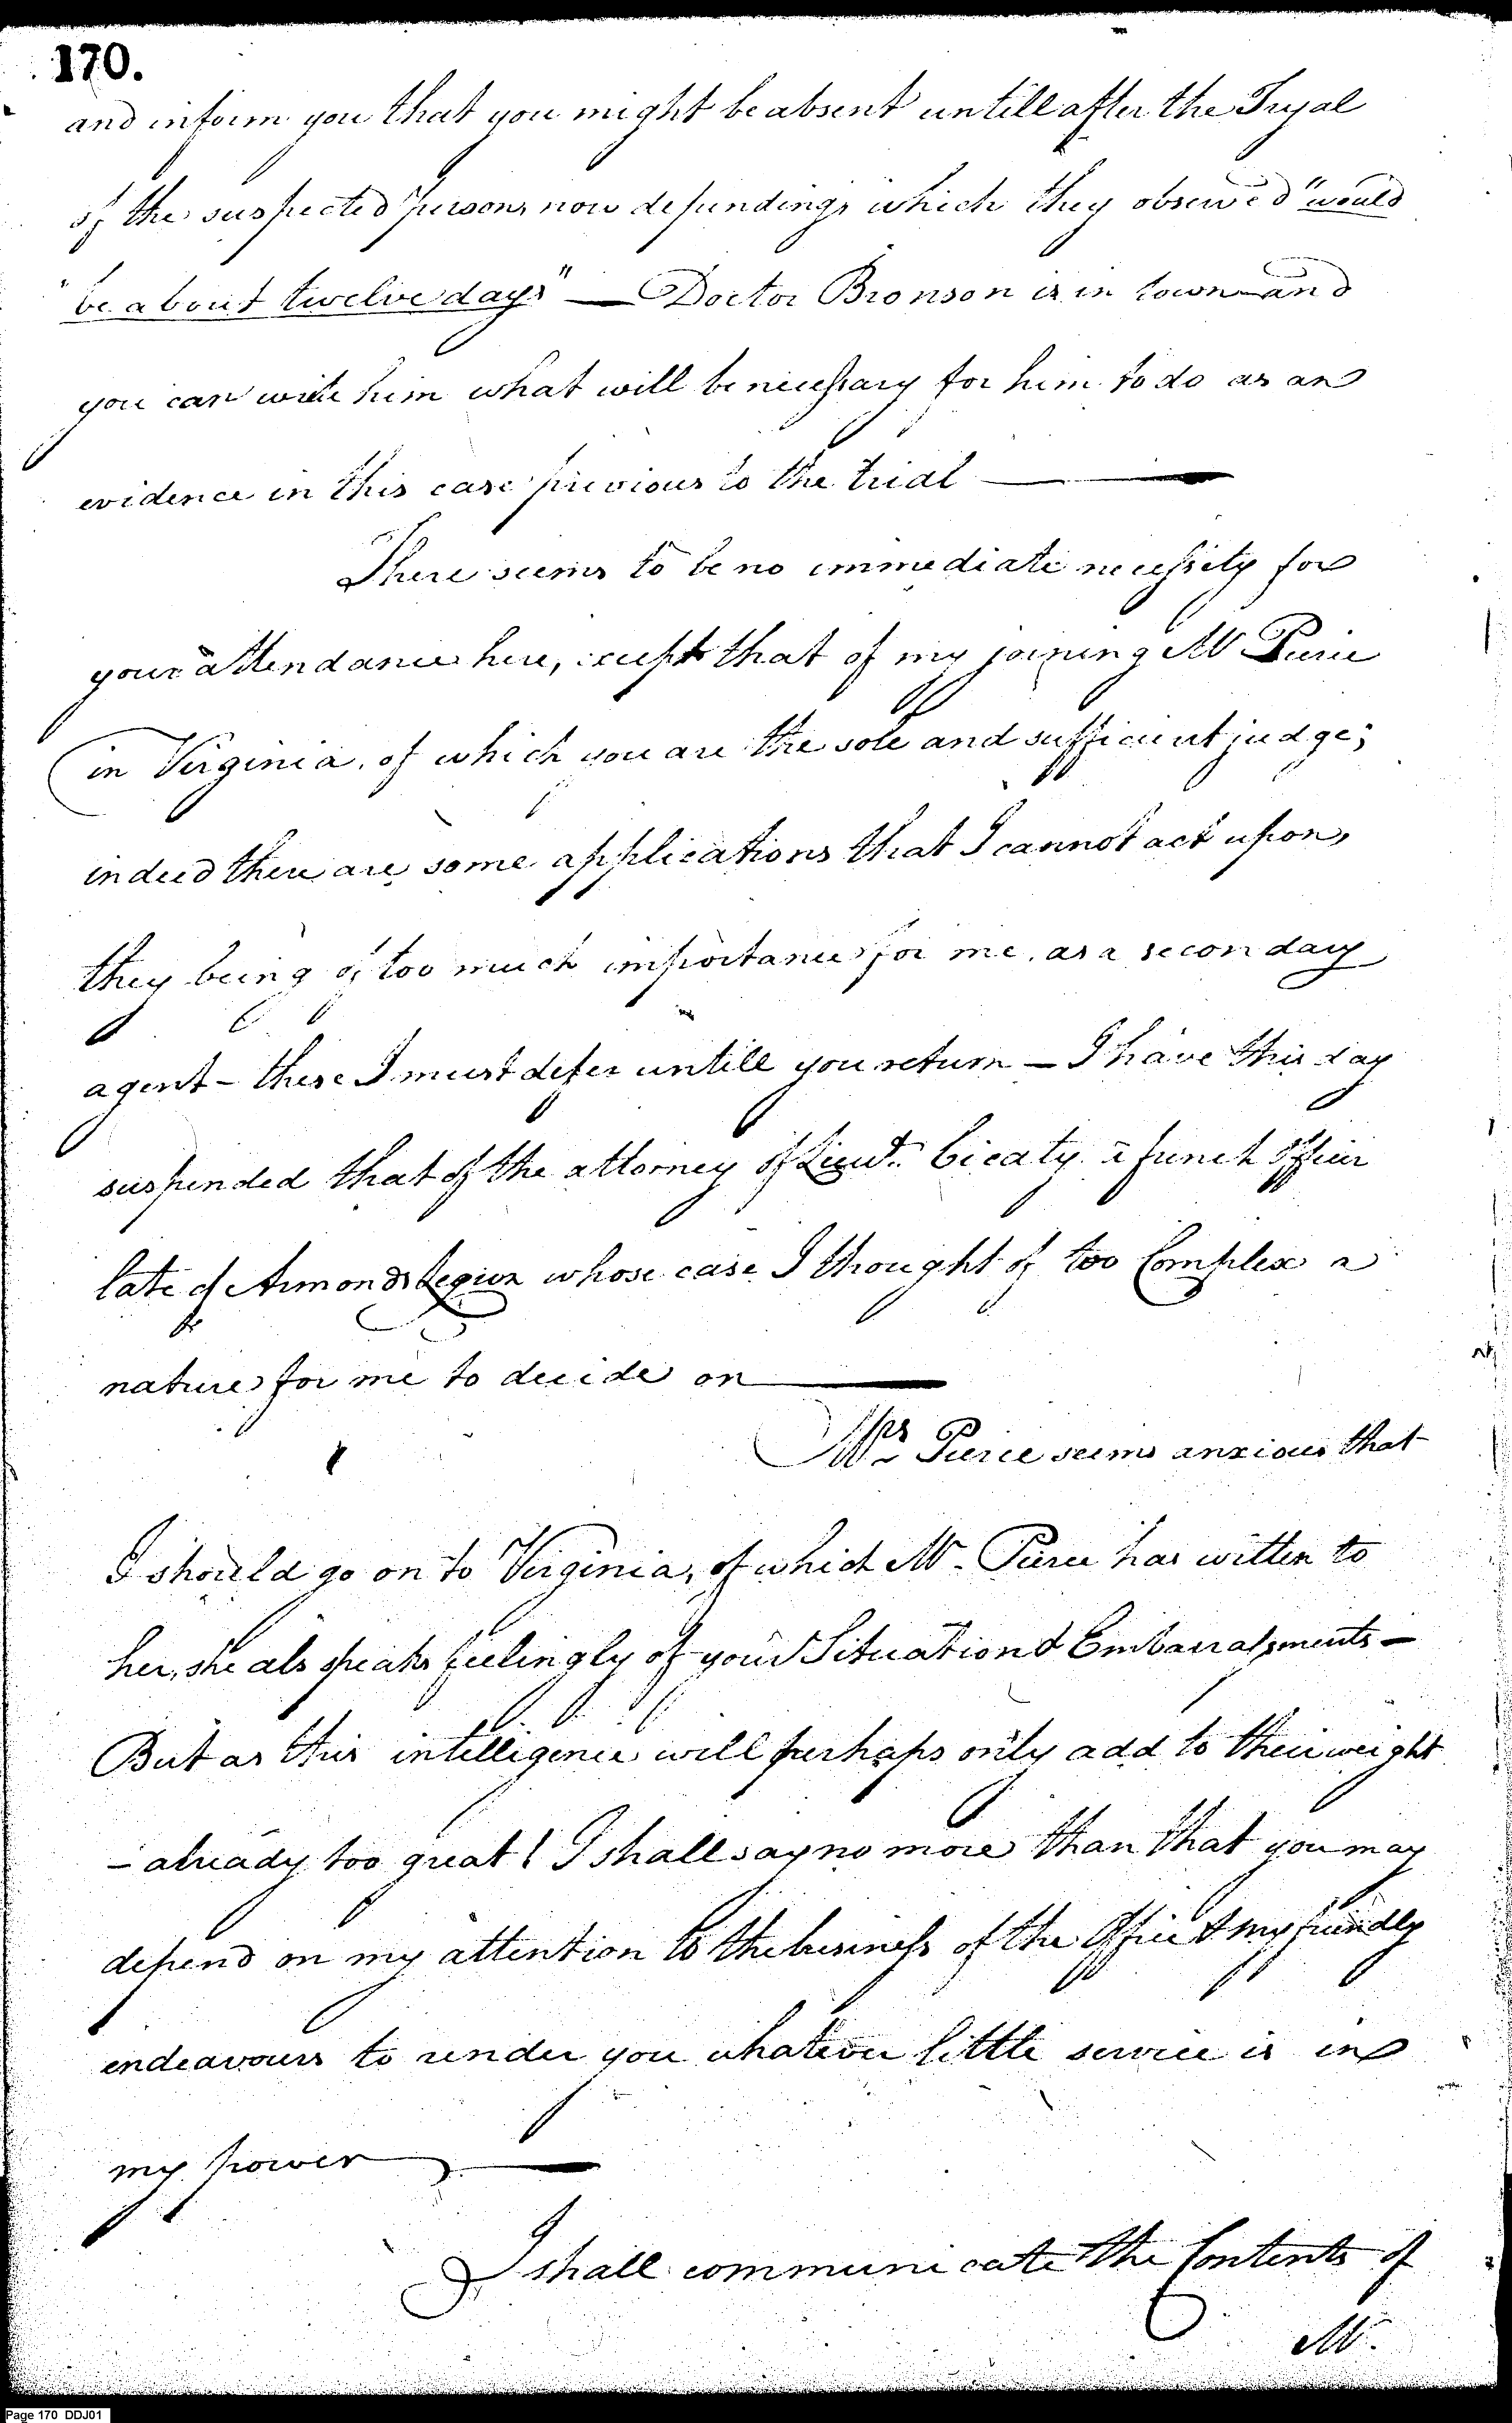 170.
and inform you that you might be absent untill after the Tryal
of the suspected persons now depending, which they observed "would
"be about twelve days" — Doctor Bronson is in town and
you can write him what will be necessary for him to do as an
evidence in this case previous to the trial —
There seems to be no immediate necessity for
your attendance here, except that of my joining Mr Pierce
in Virginia, of which you are the sole and sufficient judge;
indeed there are some applications that I cannot act upon,
they being of too much importance for me, as a secondary
agent — these I must defer untill you return — I have this day
suspended that of the attorney of Lieut. a french Officer
late of Armonds Legion whose case I thought of too Complex a
nature for me to decide on —
Mrs Pierce seems anxious that
I should go on to Virginia, of which Mr. Pierce has written to
her, she als speaks feelingly of your Situation & Embarrassments —
But as this intelligence will perhaps only add to their weight
— already too great! I shall say no more than that you may
depend on my attention to the business of the Office & my friendly
endeavours to render you whatever little service is in
my power —
I shall communicate the Contents of
Mr.
Page 170 DDJ01